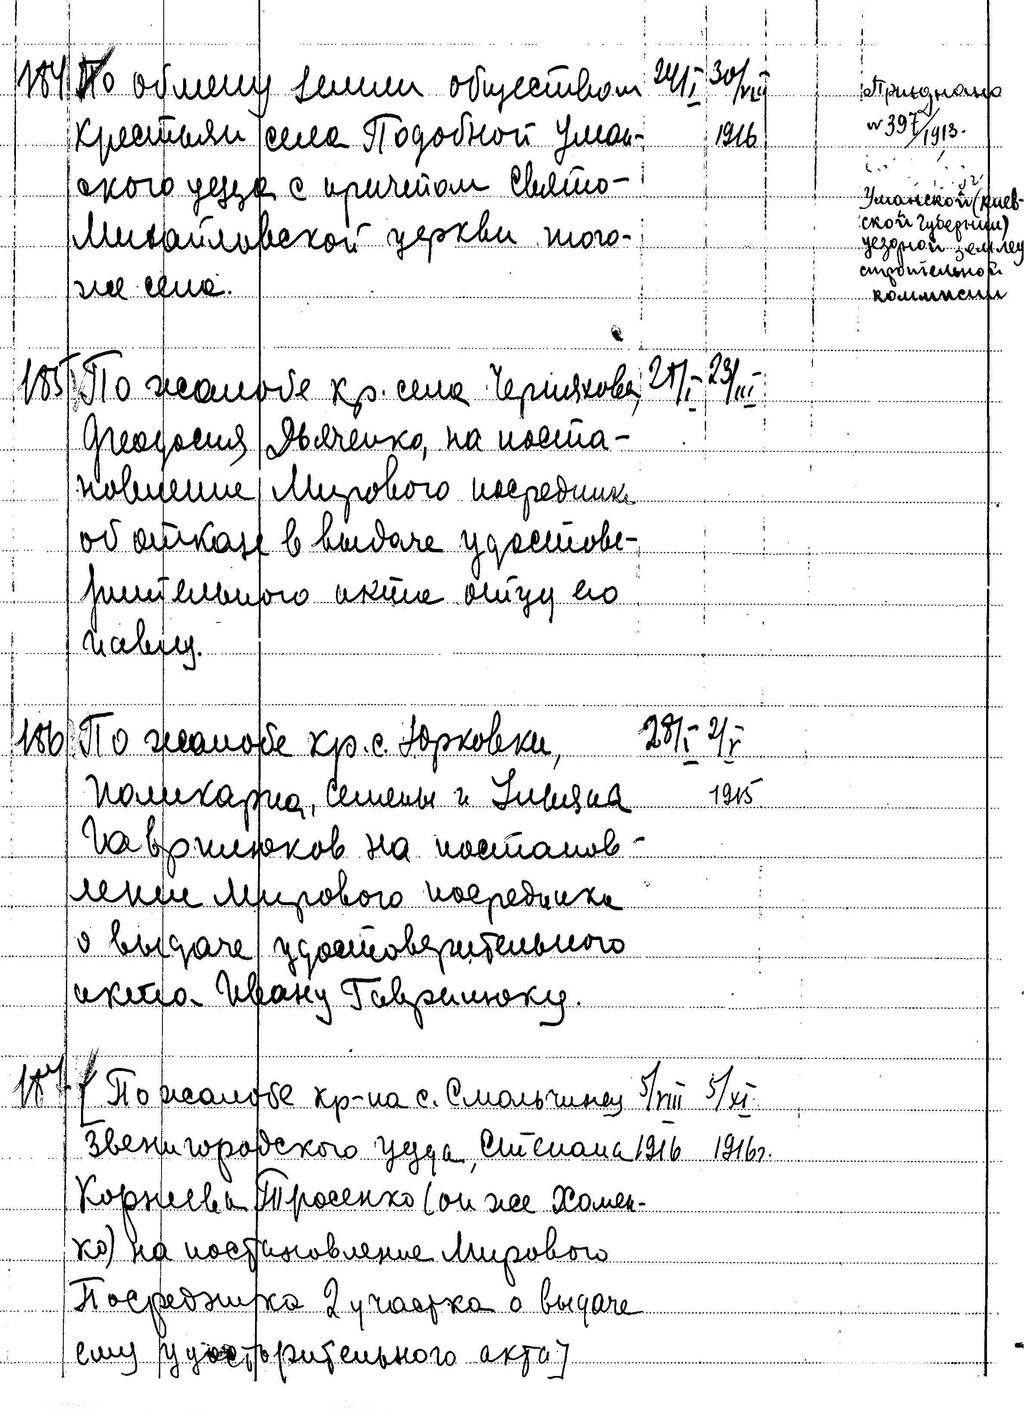 184 По обмену земли обществом 24/I 30/VIII
крестьян села Подобной Уман- 1916
ского уезда с причтом Свято-
Михайловской церкви того-
же села.
Признано
№ 397/1913.
Уманской (киев-
ской губернии)
уездной землеу
строительной
комиссии
185 По жалобе кр. села Черняхова, 21/I 23/III
Феодосия Дьяченко, на поста-
новление Мирового посредника
об отказе в выдаче удостове-
рительного акта отцу его
Иавлу.
186 По жалобе кр. с. Юрковки, 28/I 2/V
Поликарпа, Семены и Ульяна 1915
Гаврилюков на постанов-
ление Мирового посредника
о выдаче удостоверительного
акта Ивану Гаврилюку.
187 [По жалобе кр-на с. Смольчинец 5/VIII 5/XI
Звенигородского уезда, Степана 1916 1916г.
Корнеева Тросенко (он же Хомен-
ко) на постановление Мирового
Посредника 2 участка о выдаче
ему удосторительного акта]